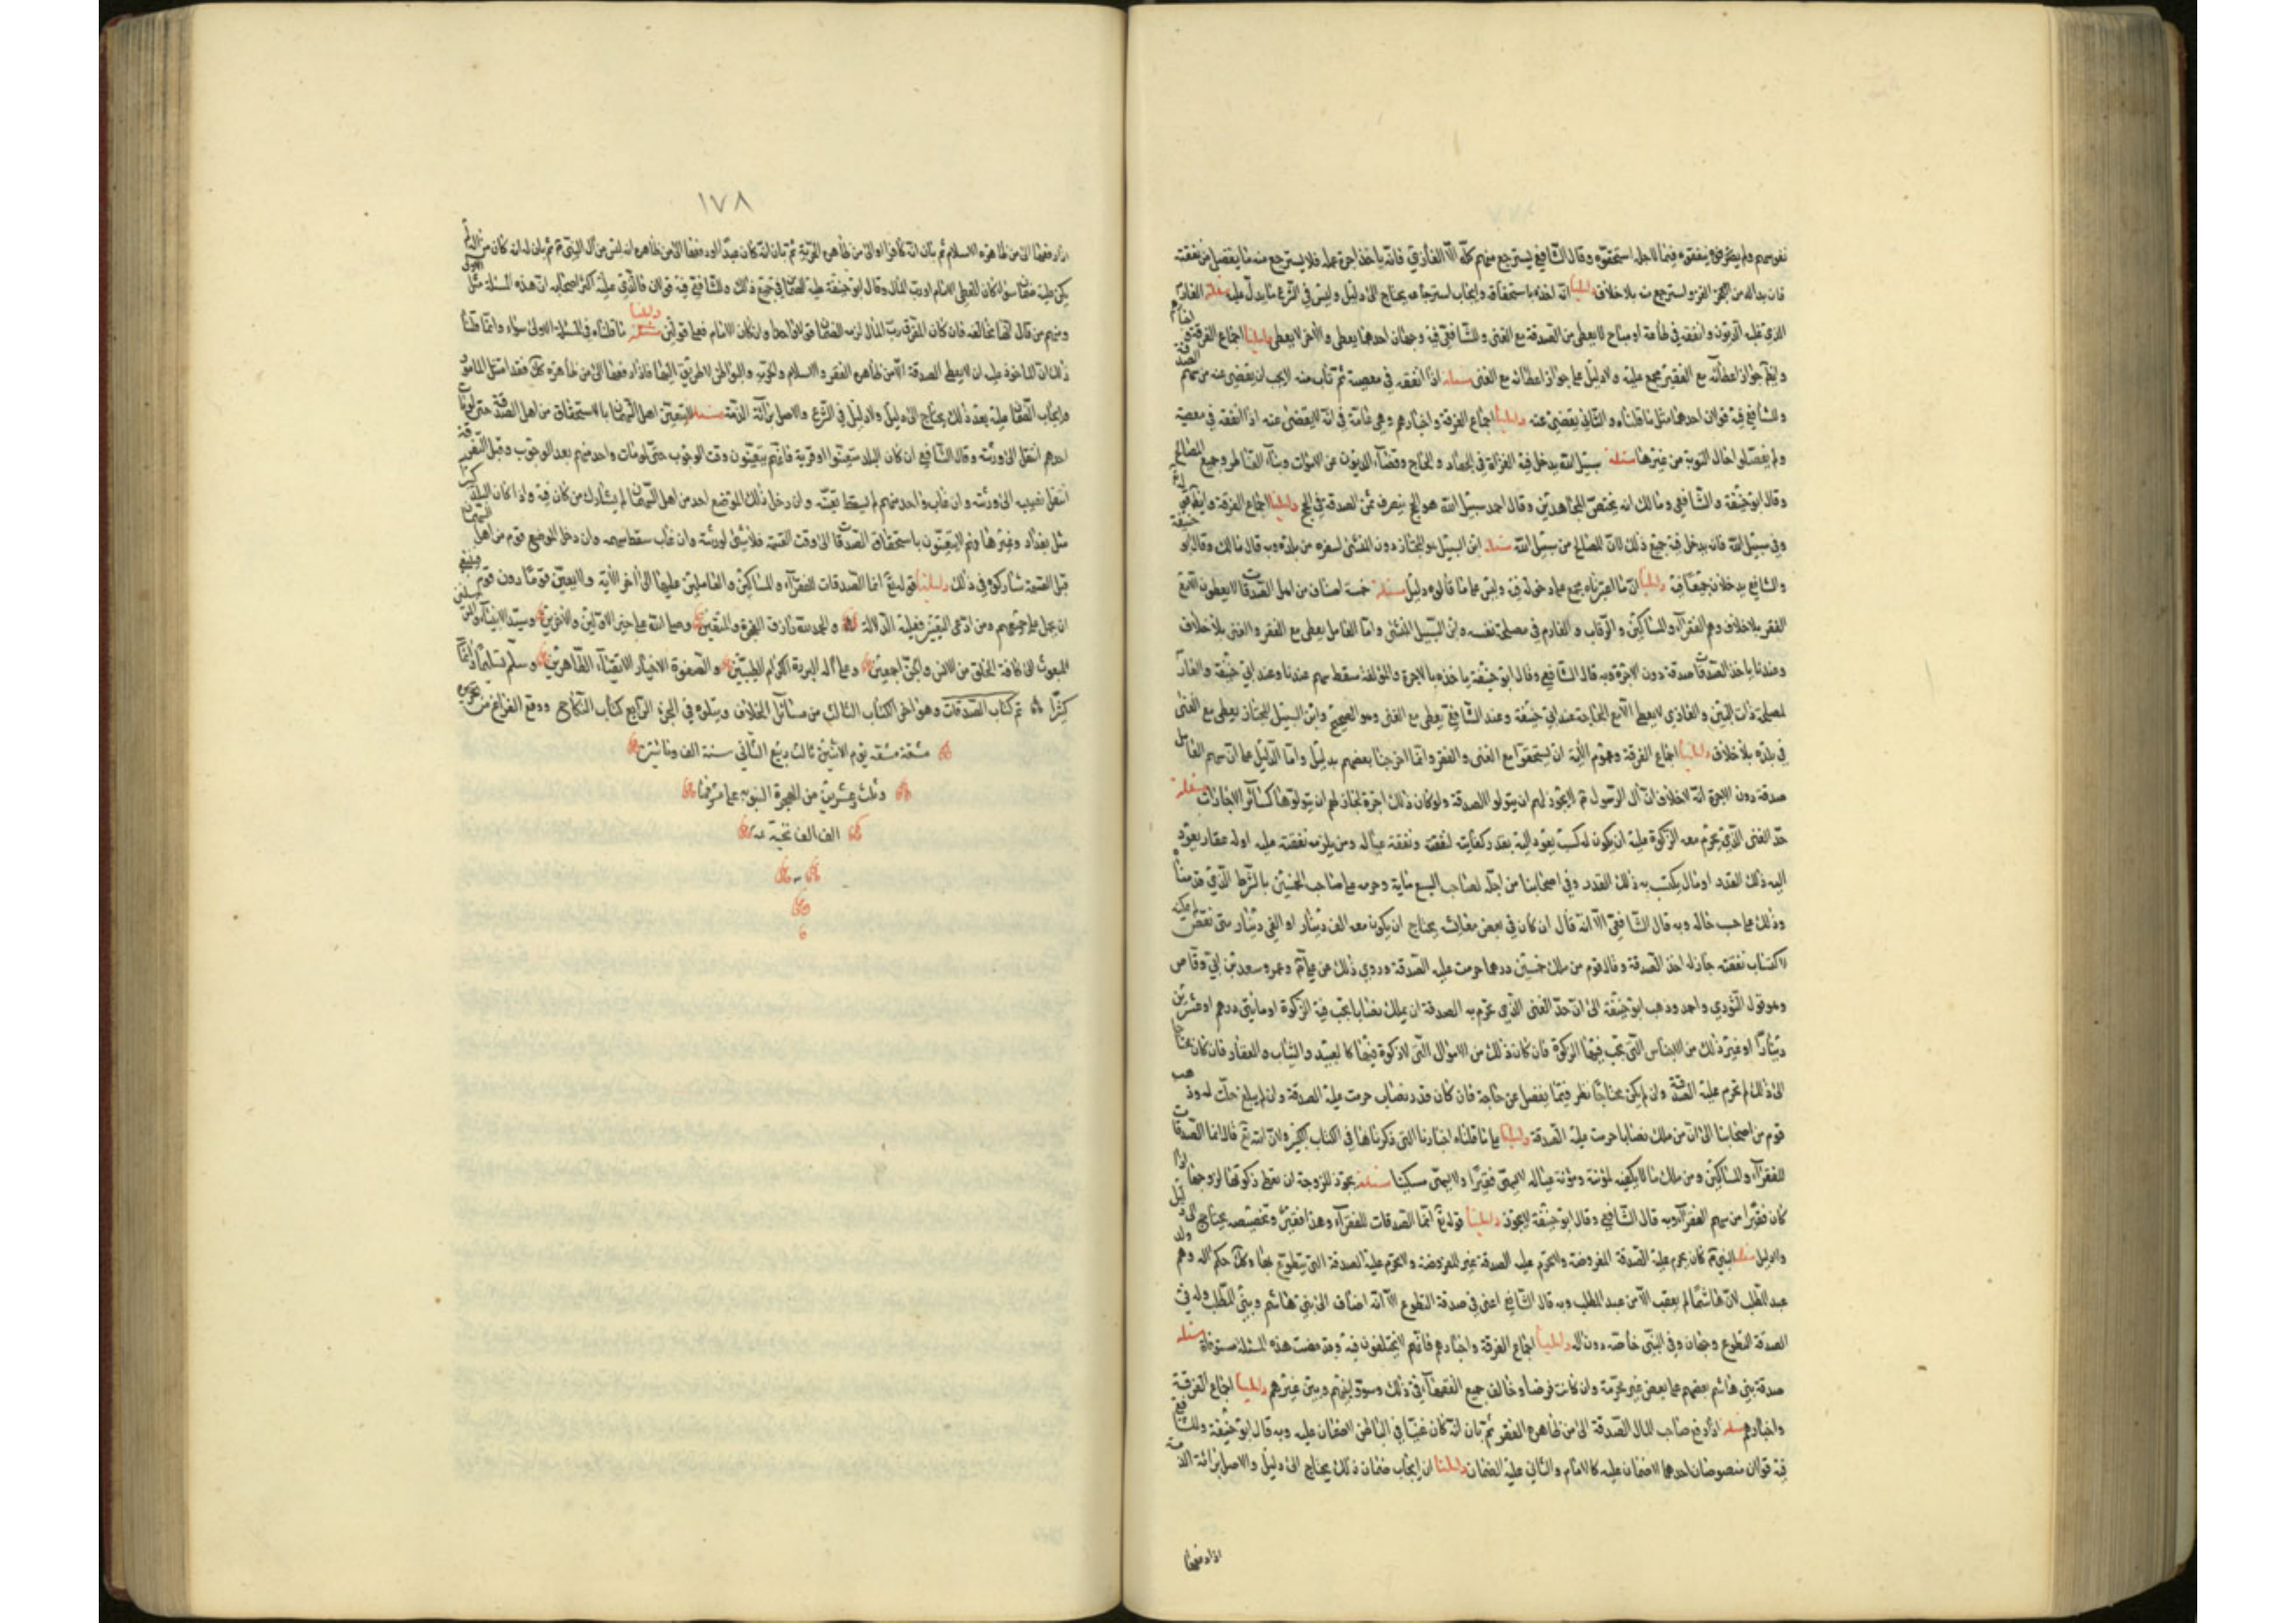 نفوسهم ولم يفرق في ينفقوه فيما لاجله استحقوه وقال الشافعي يسترجع منهم كله الا الغازي فانه ياخذ اجرة عمله فلا يسترجع منه ما يفضل من نفقته
فان بدا له من الغزو استرجع منه بلا خلاف دليلنا انه اخذه باستحقاق وايجاب استرجاعه يحتاج الى دليل وليس في الشرع ما يدل عليه مسئلة الغارم
الذي عليه الديون وانفقه في طاعة او مباح لا يعطى من الصدقة مع الغنى وللشافعي فيه وجهان احدهما يعطى والاخر لا يعطى دليلنا اجماع الفرقة
وايضا جواز اعطائه مع الفقر مجمع عليه ولا دليل على جواز اعطائه مع الغنى مسئلة اذا انفقه في معصية ثم تاب منه لا يجب ان يقضى عنه من سهم الصدقة
وللشافعي فيه قولان احدهما مثل ما قلناه والثاني يقضى عنه دليلنا اجماع الفرقة واخبارهم وهي عامة في انه لا يقضى عنه اذا انفقه في معصية
ولم يفصلوا حال التوبة من غيرها مسئلة سبيل الله يدخل فيه الغزاة في الجهاد والحاج وقضاء الديون عن الاموات وبناء القناطر وجميع المصالح
وقال ابو حنيفة والشافعي ومالك انه يختص المجاهدين وقال احمد سبيل الله هو الحج فيصرف ثمن الصدقة في الحج دليلنا اجماع الفرقة وايضا قوله تع
وفي سبيل الله فانه يدخل فيه جميع ذلك لان المصالح من سبيل الله مسئلة ابن السبيل هو المجتاز دون المنشئ لسفره من بلده وبه قال مالك وقال ابو حنيفة
والشافعي يدخلان جميعا فيه دليلنا ان ما اعتبرناه مجمع على دخوله فيه وليس على ما قالوه دليل مسئلة خمسة اصناف من اهل الصدقات لا يعطون الا مع
الفقر بلا خلاف وهم الفقراء والمساكين والرقاب والغارم في مصلحة نفسه وابن السبيل المنشئ واما العامل يعطى مع الفقر والغنى بلا خلاف
وعندنا ياخذ الصدقات صدقة دون الاجرة وبه قال الشافعي وقال ابو حنيفة ياخذه بالاجرة والمؤلفة سقط سهمهم عندنا وعند ابي حنيفة والغارم
لمصلحة ذات البين والغازي لا يعطى الا مع الحاجة عند ابي حنيفة وعند الشافعي يعطى مع الغنى وهو الصحيح وابن السبيل المجتاز يعطى مع الغنى
في بلده بلا خلاف دليلنا اجماع الفرقة وعموم الاية ان يستحقوا مع الغنى والفقر وانما اخرجنا بعضهم بدليل واما الدليل على ان سهم العامل
صدقة دون الاجرة انه لا خلاف ان ال الرسول ع لا يجوز لهم ان يتولوا الصدقة ولو كان ذلك اجرة لجاز لهم ان يتولوها كسائر الاجارات مسئلة
حد الغنى الذي يحرم معه الزكوة عليه ان يكون له كسب يعود اليه بقدر كفايته لنفقته ونفقة عياله ومن يلزمه نفقته عليه او له عقار يعود
اليه ذلك القدر او مال يكتسب به ذلك القدر وفي اصحابنا من احله لصاحب السبع مائة وحرمه على صاحب الخمسين بالشرط الذي قدمناه
وذلك على حسب حاله وبه قال الشافعي الا انه قال ان كان في بعض معايشه يحتاج ان يكون معه الف دينار او الفي دينار متى نقص لم يمكنه
لاكتساب نفقته جاز له اخذ الصدقة وقال قوم من ملك خمسين درهما حرمت عليه الصدقة وروي ذلك عن علي ع وعمر وسعد بن ابي وقاص
وهو قول الثوري واحمد وذهب ابو حنيفة الى ان حد الغنى الذي يحرم به الصدقة ان يملك نصابا يجب فيه الزكوة او مائتي درهم او عشرين
دينارا او غير ذلك من الاجناس التي تجب فيها الزكوة فان كان ذلك من الاموال التي لا زكوة فيها كالعبيد والثياب والعقار فان كان محتاجا
الى ذلك لم تحرم عليه الصدقة وان لم يكن محتاجا نظر فيما يفضل عن حاجة فان كان قدر نصاب حرمت عليه الصدقة وان لم يبلغ حلت له وذهب
قوم من اصحابنا الى ان من ملك نصابا حرمت عليه الصدقة دليلنا على ما قلناه اخبارنا التي ذكرناها في الكتاب الكبير ولان الله تع قال انما الصدقات
للفقراء والمساكين ومن ملك ما لا يكفيه لمؤنته ومؤنة عياله لا يسمى فقيرا ولا يسمى مسكينا مسئلة يجوز للزوجة ان تعطي زكوتها لزوجها اذا
كان فقيرا من سهم الفقراء وبه قال الشافعي وقال ابو حنيفة لا يجوز دليلنا قوله تع انما الصدقات للفقراء وهذا فقير وتخصيصه يحتاج الى دليل
والدليل مسئلة النبي ع كان يحرم عليه الصدقة المفروضة ولا تحرم عليه الصدقة غير المفروضة ولا تحرم عليه الصدقة التي يتطوع بها وكذا حكم اله وهم ولد
عبد المطلب لان هاشما لم يعقب الا من عبد المطلب وبه قال الشافعي اعني في صدقة التطوع الا انه اضاف الى بني هاشم وبني المطلب وله في
الصدقة التطوع وجهان وفي النبي خاصة دون اله دليلنا اجماع الفرقة واخبارهم فانهم لا يختلفون فيه وقد مضت هذه المسئلة مستوفاة مسئلة
صدقة بني هاشم بعضهم على بعض غير محرمة وان كانت فرضا وخالف جميع الفقهاء في ذلك وسووا بينهم وبين غيرهم دليلنا اجماع الفرقة
واخبارهم مسئلة اذا دفع صاحب المال الصدقة الى من ظاهره الفقر ثم بان انه كان غنيا في الباطن لا ضمان عليه وبه قال ابو حنيفة وللشافعي
فيه قولان منصوصان احدهما لا ضمان عليه كالامام والثاني عليه الضمان دليلنا ان ايجاب ضمان ذلك يحتاج الى دليل والاصل برائة الذمة
اذا دفعها
١٧٨
اذا دفعها الى من ظاهره الاسلام ثم بان انه كان كافرا او الى من ظاهره الحرية ثم بان انه كان عبدا او دفعها الى من ظاهره انه ليس من ال النبي ع ثم بان انه كان من اله لم
يكن عليه ضمان سواء كان المعطي الامام او رب المال وقال ابو حنيفة عليه الضمان في جميع ذلك وللشافعي فيه قولان فالذي عليه اكثر اصحابه ان هذه المسئلة مثل الاولى
ومنهم من قال انها مخالفة فان كان المفرق رب المال لزمه الضمان قولا واحدا وان كان الامام فعلى قولين دليلنا ما قلناه في المسئلة الاولى سواء وانما قلنا
ذلك ان الماخوذ عليه ان لا يعطي الصدقة الا من ظاهره الفقر والاسلام والحرية والبواطن لا طريق اليها فاذا دفعها الى من ظاهره كذلك فقد امتثل المامور
وايجاب الضمان عليه بعد ذلك يحتاج الى دليل ولا دليل في الشرع والاصل برائة الذمة مسئلة لا يتعين اهل السهمان بالاستحقاق من اهل الصدقة حتى لو مات
احدهم انتقل الى ورثته وقال الشافعي ان كان البلد متعينا او قرية فانهم يتعينون وقت الوجوب حتى لو مات واحد منهم بعد الوجوب وقبل التفرقة
انتقل نصيبه الى ورثته وان غاب واحد منهم لم يسقط بغيبته وان دخل ذلك الموضع احد من اهل السهمان لم يشارك من كان فيه واذا كان البلد كبيرا
مثل بغداد وغيرها فانهم لا يتعينون باستحقاق الصدقات الى وقت القسمة فلا شئ لورثته وان غاب سقط سهمه وان دخل الموضع قوم من اهل السهمان
قبل القسمة شاركوه في ذلك دليلنا قوله تع انما الصدقات للفقراء والمساكين والعاملين عليها الى اخر الاية ولا يعين قوما دون قوم فينبغي
ان يحمل على جميعهم ومن ادعى التعيين فعليه الدلالة والحمد لله رازق البررة والمتقين وصلى الله على خير الاولين والاخرين وسيد الانبياء والمرسلين
المبعوث الى كافة الخلق من الانس والجن اجمعين وعلى اله البررة الكرام الطيبين والصفوة الاخيار الاتقياء الطاهرين وسلم تسليما دائما
كثيرا تم كتاب الصدقات وهو اخر الكتاب الثالث من مسائل الخلاف ويتلوه في الجزء الرابع كتاب النكاح ووقع الفراغ من تحرير
مشقه يوم الاثنين ثالث ربيع الثاني سنة الف ومائتين
وثلث وعشرين من الهجرة النبوية على مشرفها
الف الف تحية